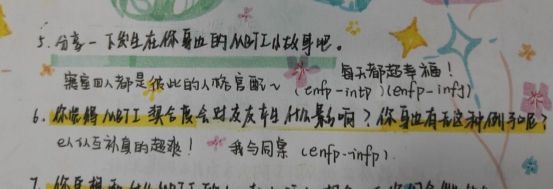 5. 分享一下发生在你身边的MBTI小故事吧。
寝室四人都是彼此的人格官配~ 每天都超幸福！
(enfp-intp)(enfp-infj)
6. 你觉得MBTI契合度会对友友产生什么影响？你身边有无这种例子呢？
e人i人互补真的超爽！ 我与同桌 (enfp-infp).
7. 你